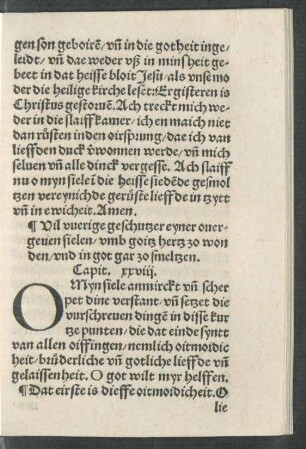 gen son geboirē/ vñ in die gotheit inge/
leidt/ vñ dae weder vß in minsheit ge/
beet in dat heisse bloit Jesu/als vnse mo
der die heilige kirche leset: Er gisteren is
Christus gestorūē. Ach treckt mich we/
der in die slaiff kamer/ ich en maich niet
dan rūsten in den oirsprung/ dae ich van
lieffden duck v̄wonnen werde/ vñ mich
seluen vñ alle dinck vergesse. Ach slaiff
nu o myn siele in die heisse siedēde gesmol
tzen vereynichde gerūste lieffde in tzytt
vñ in ewicheit. Amen.
¶ Vil vuerige geschutzer eyner ouer-
geuen sielen/ vmb goitz hertz zo won
den/ vnd in got gar zo smeltzen.
Capit. xxviij.
O Myn siele anmirckt vñ scher
pet dine verstant/ vñ setzet die
vurschreuen dingē in disse kur
tze punten/ die dat einde syntt
van allen oiffingen/ nemlich oitmoidic
heit/ brūderliche vñ gotliche lieffde vñ
gelaissenheit. O got wilt myr helffen.
¶ Dat eirste is dieffe oitmoidicheit. O
lie